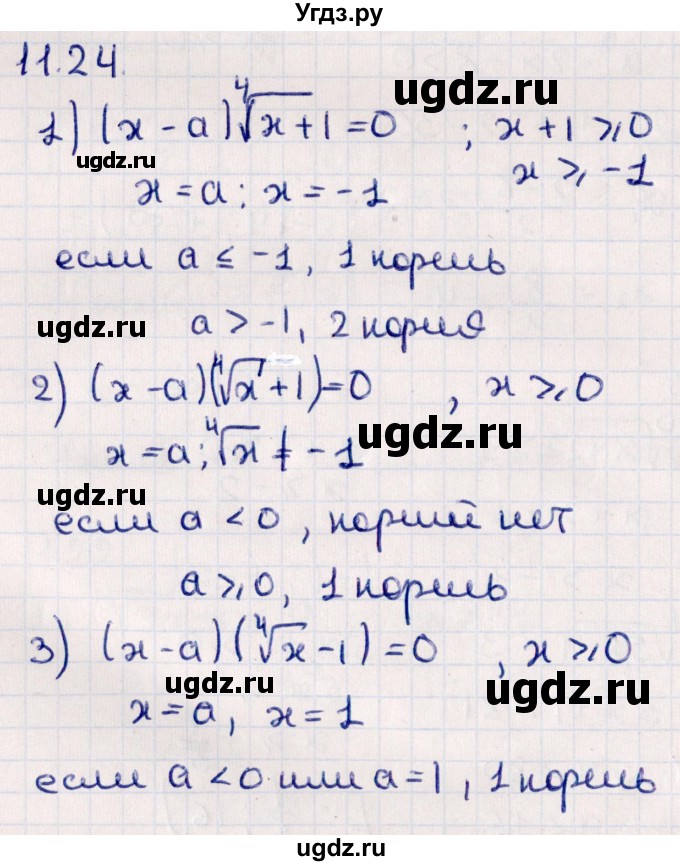 Угдз.ру
11.24.
1) (x - a) ⁴√x+1 = 0 ; x + 1 ⩾ 0
x = a ; x = -1 x ⩾ -1
если a ≤ -1, 1 корень
a > -1, 2 корня
2) (x - a)(⁴√x + 1) = 0 , x ⩾ 0
x = a ; ⁴√x ≠ -1
если a < 0 , корней нет
a ⩾ 0, 1 корень
3) (x - a)(⁴√x - 1) = 0 , x ⩾ 0
x = a , x = 1
если a < 0 или a = 1 , 1 корень
ugdz.ru
ugdz.ru
ugdz.ru
ugdz.ru
ugdz.ru
ugdz.ru
ugdz.ru
ugdz.ru
ugdz.ru
ugdz.ru